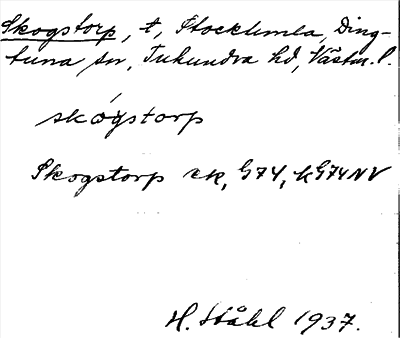 Skogstorp, t, Stocklumla, Ding-
tuna sn, Tuhundra hd, Västm. l.
skógstorp
Skogstorp ek, G74, kG74NV
H. Ståhl 1937.